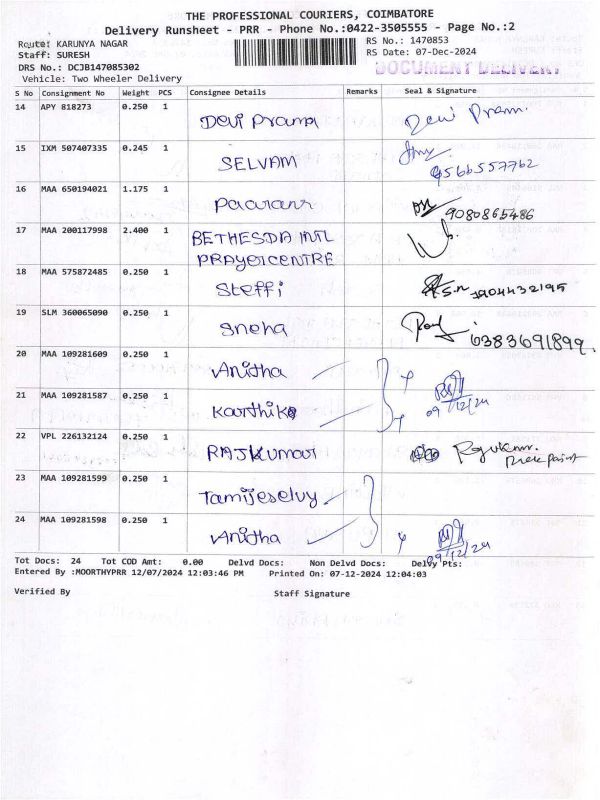 THE PROFESSIONAL COURIERS, COIMBATORE
Delivery Runsheet - PRR - Phone No.:0422-3505555 - Page No.:2
Route: KARUNYA NAGAR RS No.: 1470853
Staff: SURESH RS Date: 07-Dec-2024
DRS No.: DCJB147085302 DOCUMENT DELIVERY
Vehicle: Two Wheeler Delivery
S No Consignment No Weight PCS Consignee Details Remarks Seal & Signature
14 APY 818273 0.250 1 Devi Prama Devi Pram.
15 IXM 507407335 0.245 1 SELVAM 9566557762
16 MAA 650194021 1.175 1 9080865486
17 MAA 200117998 2.400 1 BETHESDA INTL
PRAYERCENTRE
18 MAA 575872485 0.250 1 Steffi
19 SLM 360065090 0.250 1 Sneha 6383691899
20 MAA 109281609 0.250 1 Anitha
21 MAA 109281587 0.250 1 Karthika 09/12/24
22 VPL 226132124 0.250 1 RAJKUMAR
23 MAA 109281599 0.250 1 Tamijeselvy
24 MAA 109281598 0.250 1 Anitha 09/12/24
Tot Docs: 24 Tot COD Amt: 0.00 Delvd Docs: Non Delvd Docs: Delvy Pts:
Entered By :MOORTHYPRR 12/07/2024 12:03:46 PM Printed On: 07-12-2024 12:04:03
Verified By Staff Signature